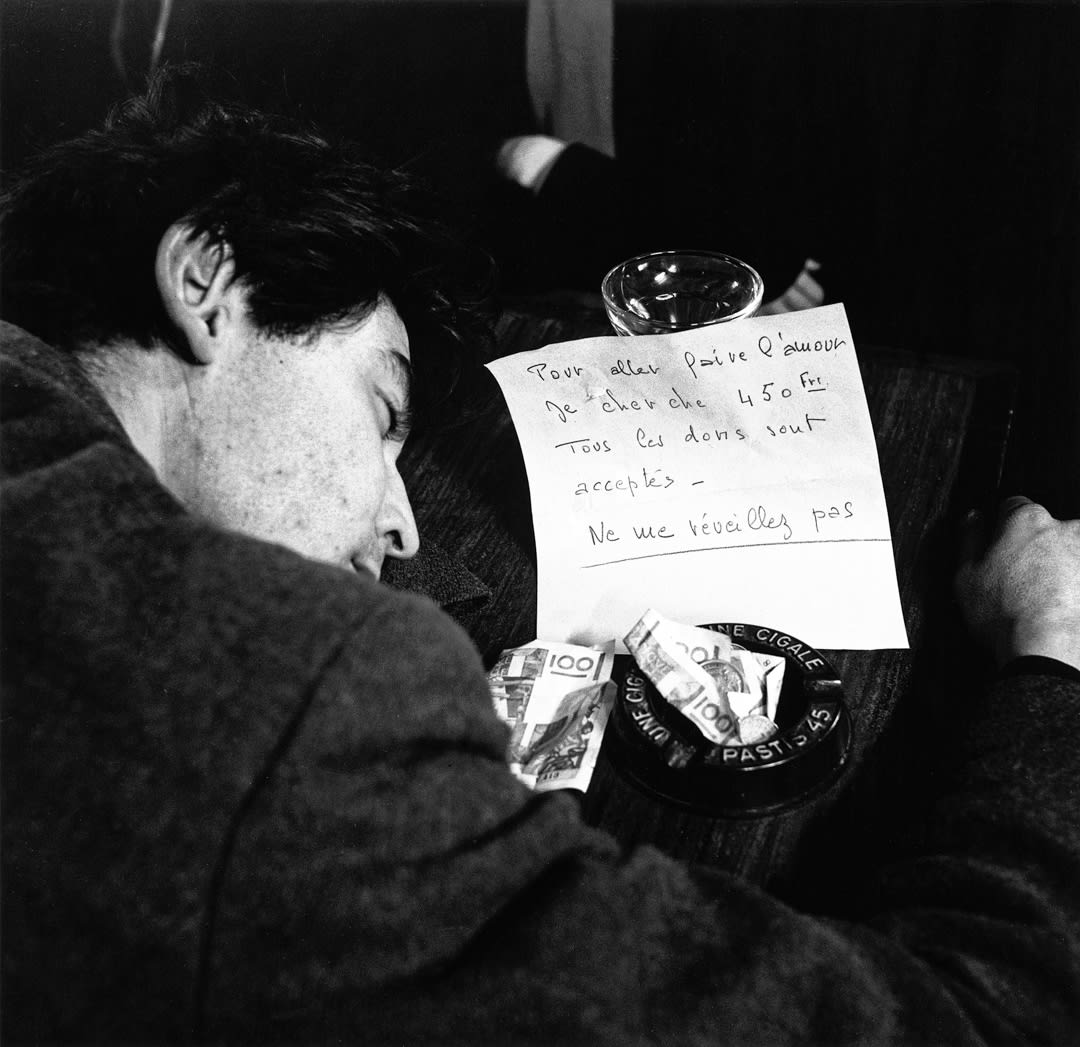 Pour aller faire l'amour
Je cherche 450 Frs.
Tous les dons sont
acceptés –
Ne me réveillez pas
100
100
UNE CIGALE
UNE CIG
PASTIS 45